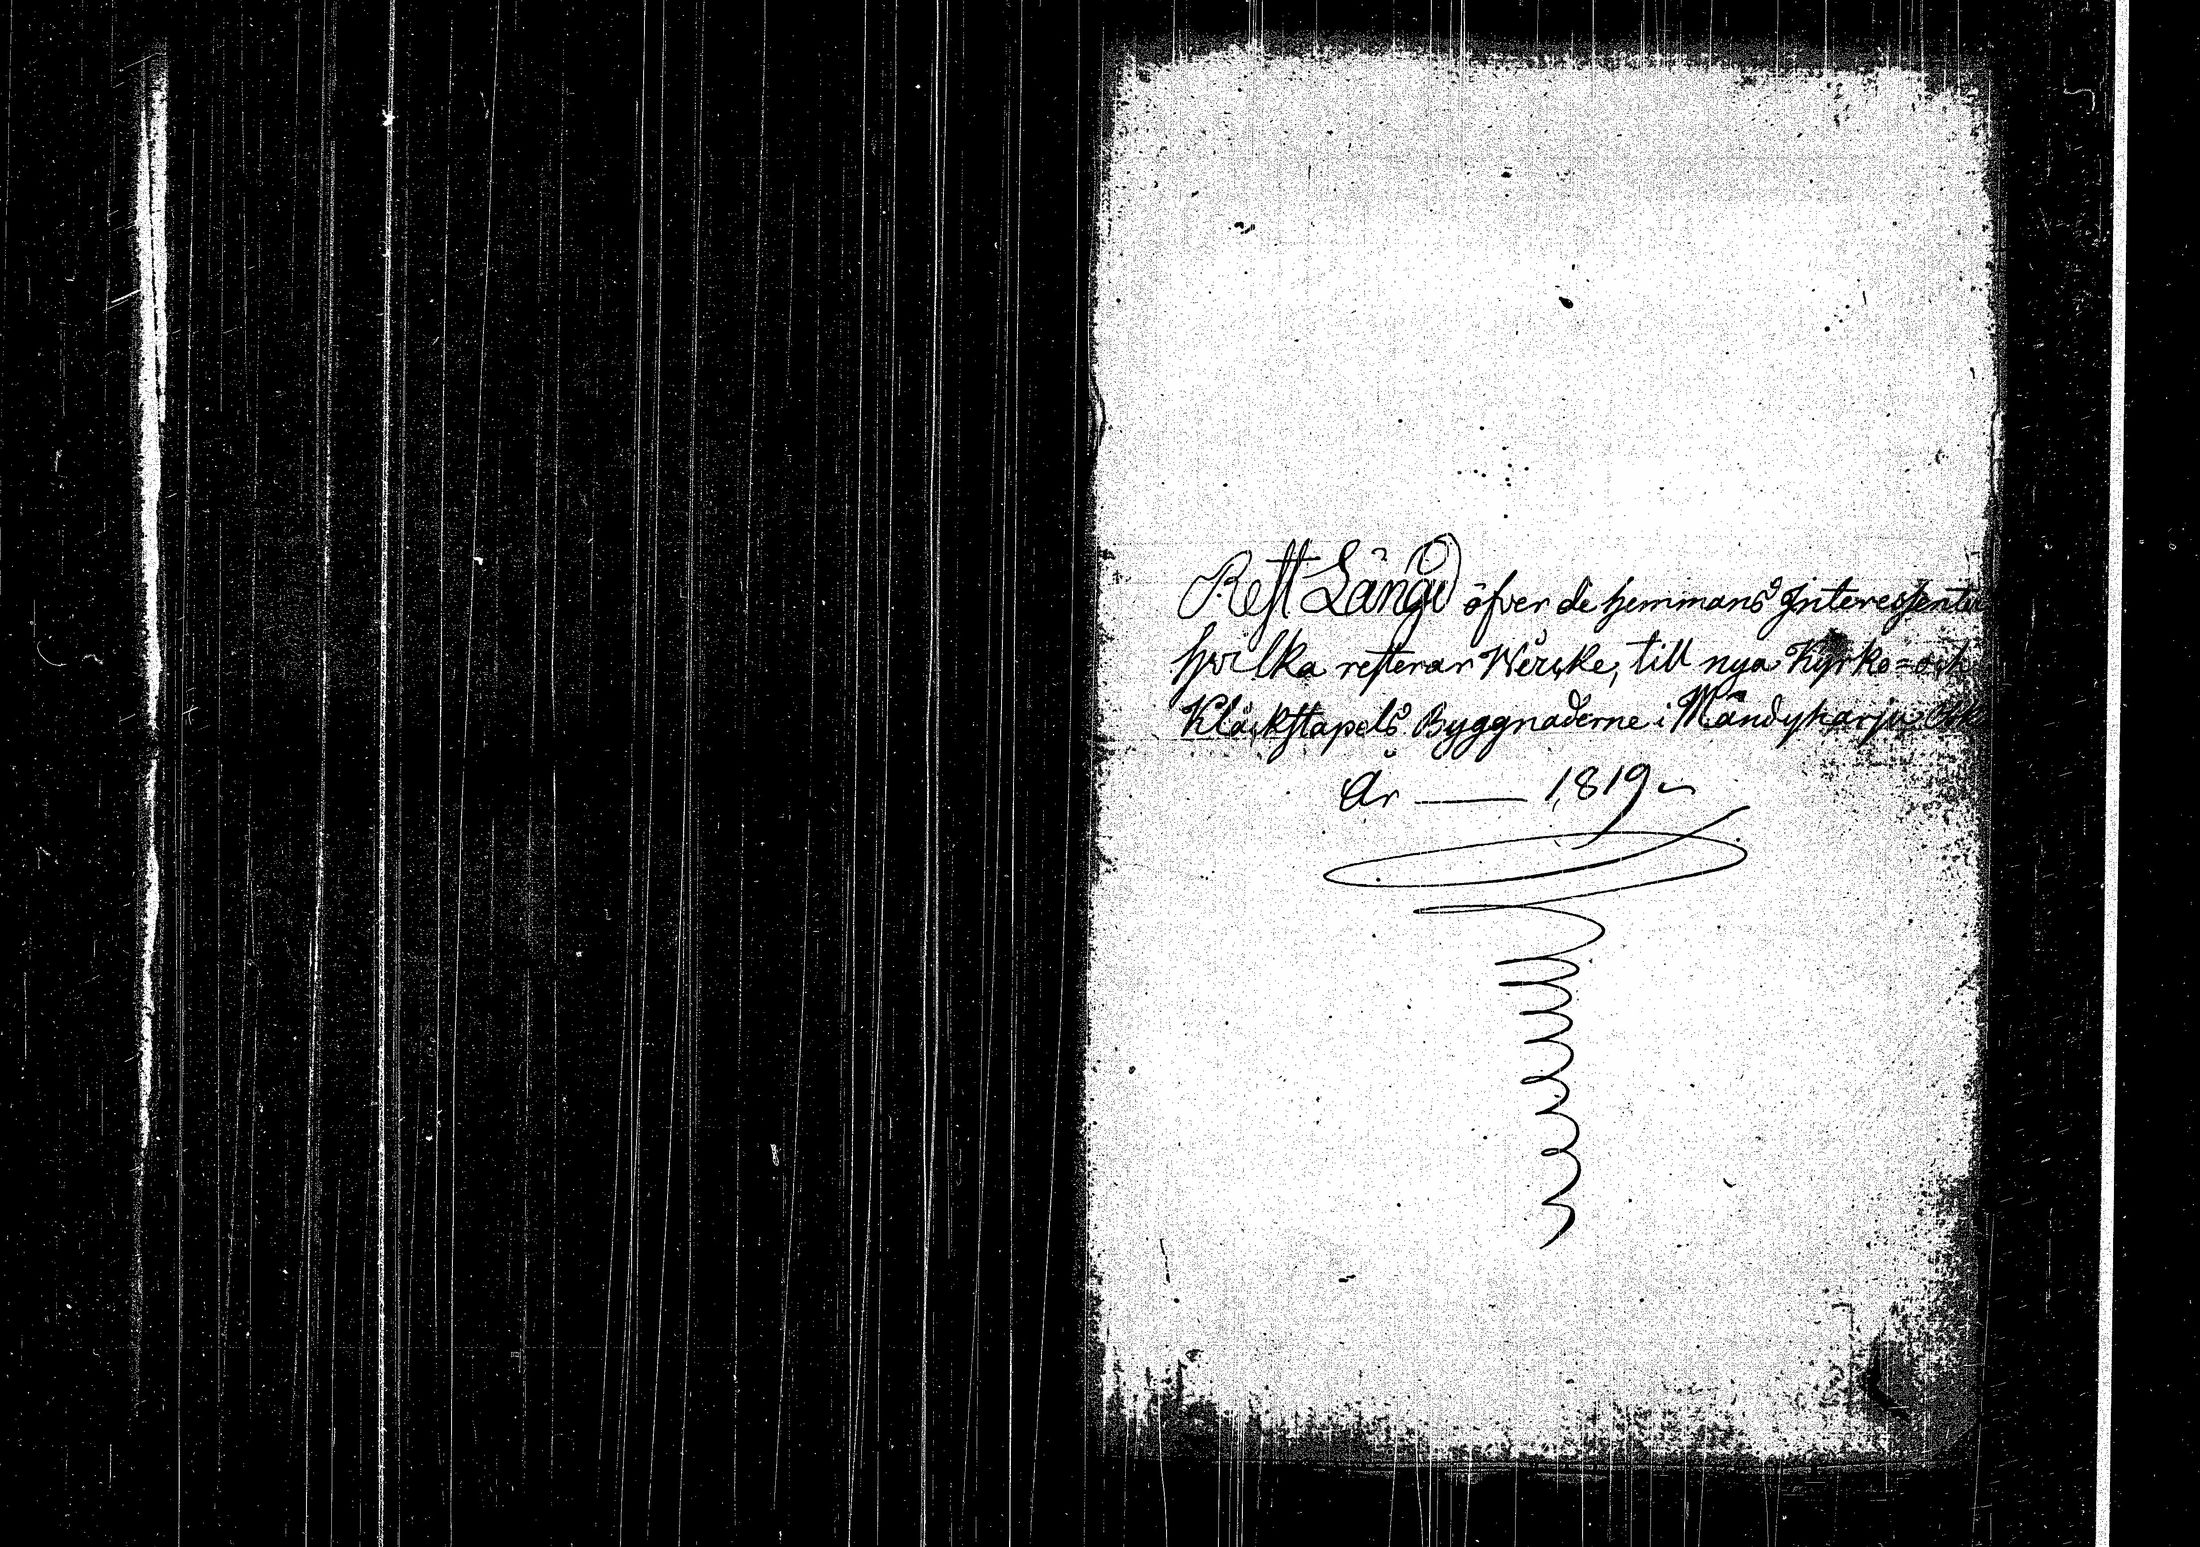 Rest Längd öfver de hemmans Interessenter
hvilka resterar Wercke, till nya Kyrko= och
Kläckstapels Byggnaderne i Mändyharju
År — 1819